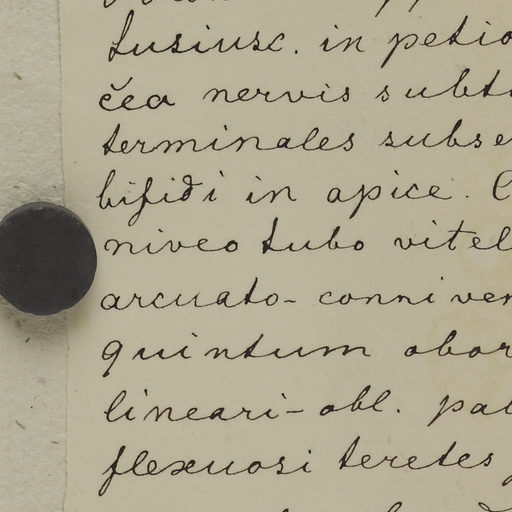 fusiusc. in petio
čea nervis subt
terminales subse
bifidi in apice. C
niveo tubo vitel
arcuato-conniven
quintum abor
lineari-obl. pat
flexuosi teretes